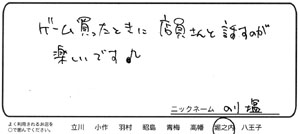 ゲーム買ったときに店員さんと話すのが
楽しいです♪
ニックネーム 刈塩
よく利用されるお店を
○で囲んでください。
立川 小作 羽村 昭島 青梅 高幡 堀之内 八王子